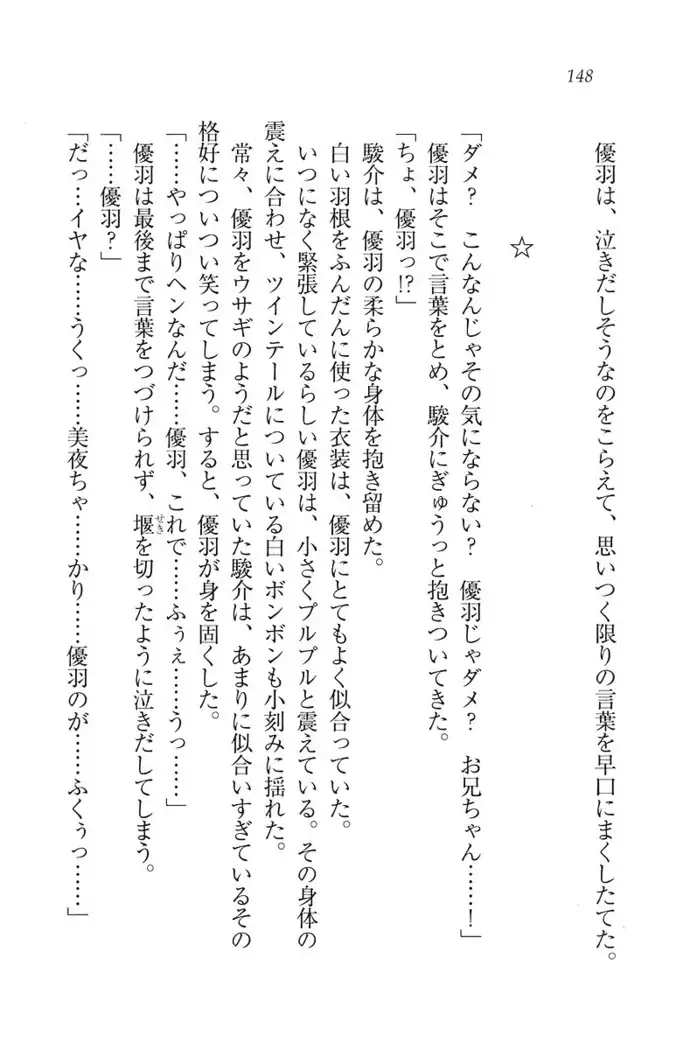 148
優羽は、泣きだしそうなのをこらえて、思いつく限りの言葉を早口にまくしたてた。
☆
「ダメ？　こんなんじゃその気にならない？　優羽じゃダメ？　お兄ちゃん……！」
優羽はそこで言葉をとめ、駿介にぎゅうっと抱きついてきた。
「ちょ、優羽っ!?」
駿介は、優羽の柔らかな身体を抱き留めた。
白い羽根をふんだんに使った衣装は、優羽にとてもよく似合っていた。
いつになく緊張しているらしい優羽は、小さくプルプルと震えている。その身体の
震えに合わせ、ツインテールについている白いボンボンも小刻みに揺れた。
常々、優羽をウサギのようだと思っていた駿介は、あまりに似合いすぎているその
格好についつい笑ってしまう。すると、優羽が身を固くした。
「……やっぱりヘンなんだ……優羽、これで……ふぅぇ……うっ……」
優羽は最後まで言葉をつづけられず、堰せきを切ったように泣きだしてしまう。
「……優羽？」
「だっ…イヤな……うくっ……美夜ちゃ……かり……優羽のが……ふくぅっ……」